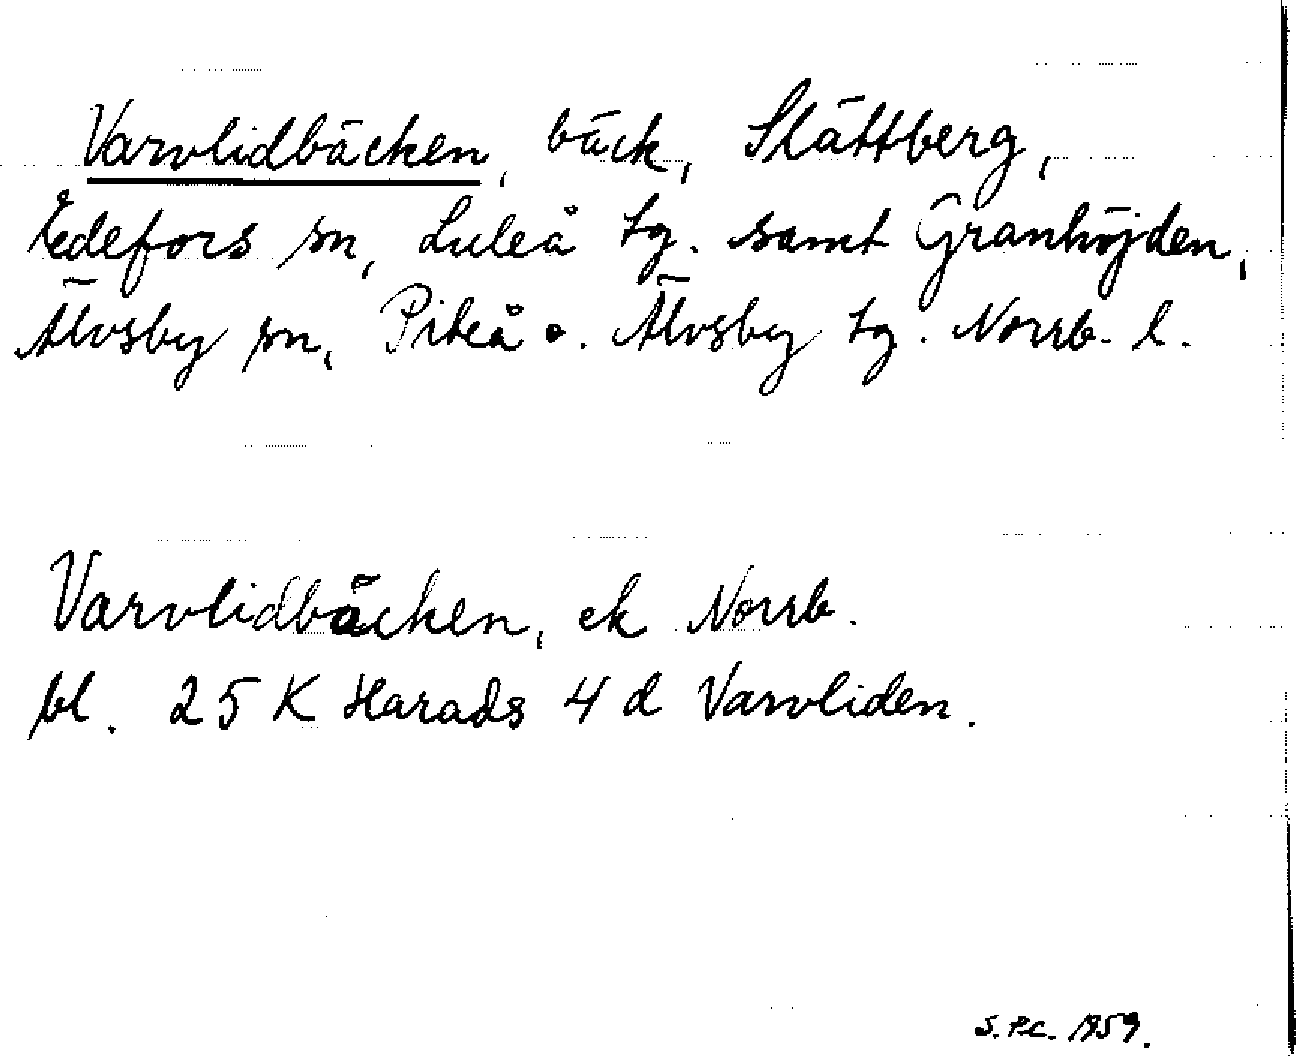 Varvlidbäcken, bäck, Slättberg,
Edefors sn, Luleå tg. samt Granhöjden,
Älvsby sn, Piteå o. Älvsby tg. Norrb. l.
Varvlidbäcken, ek Norrb.
bl. 25 K Harads 4 d Varvliden.
S.P.C. 1959.